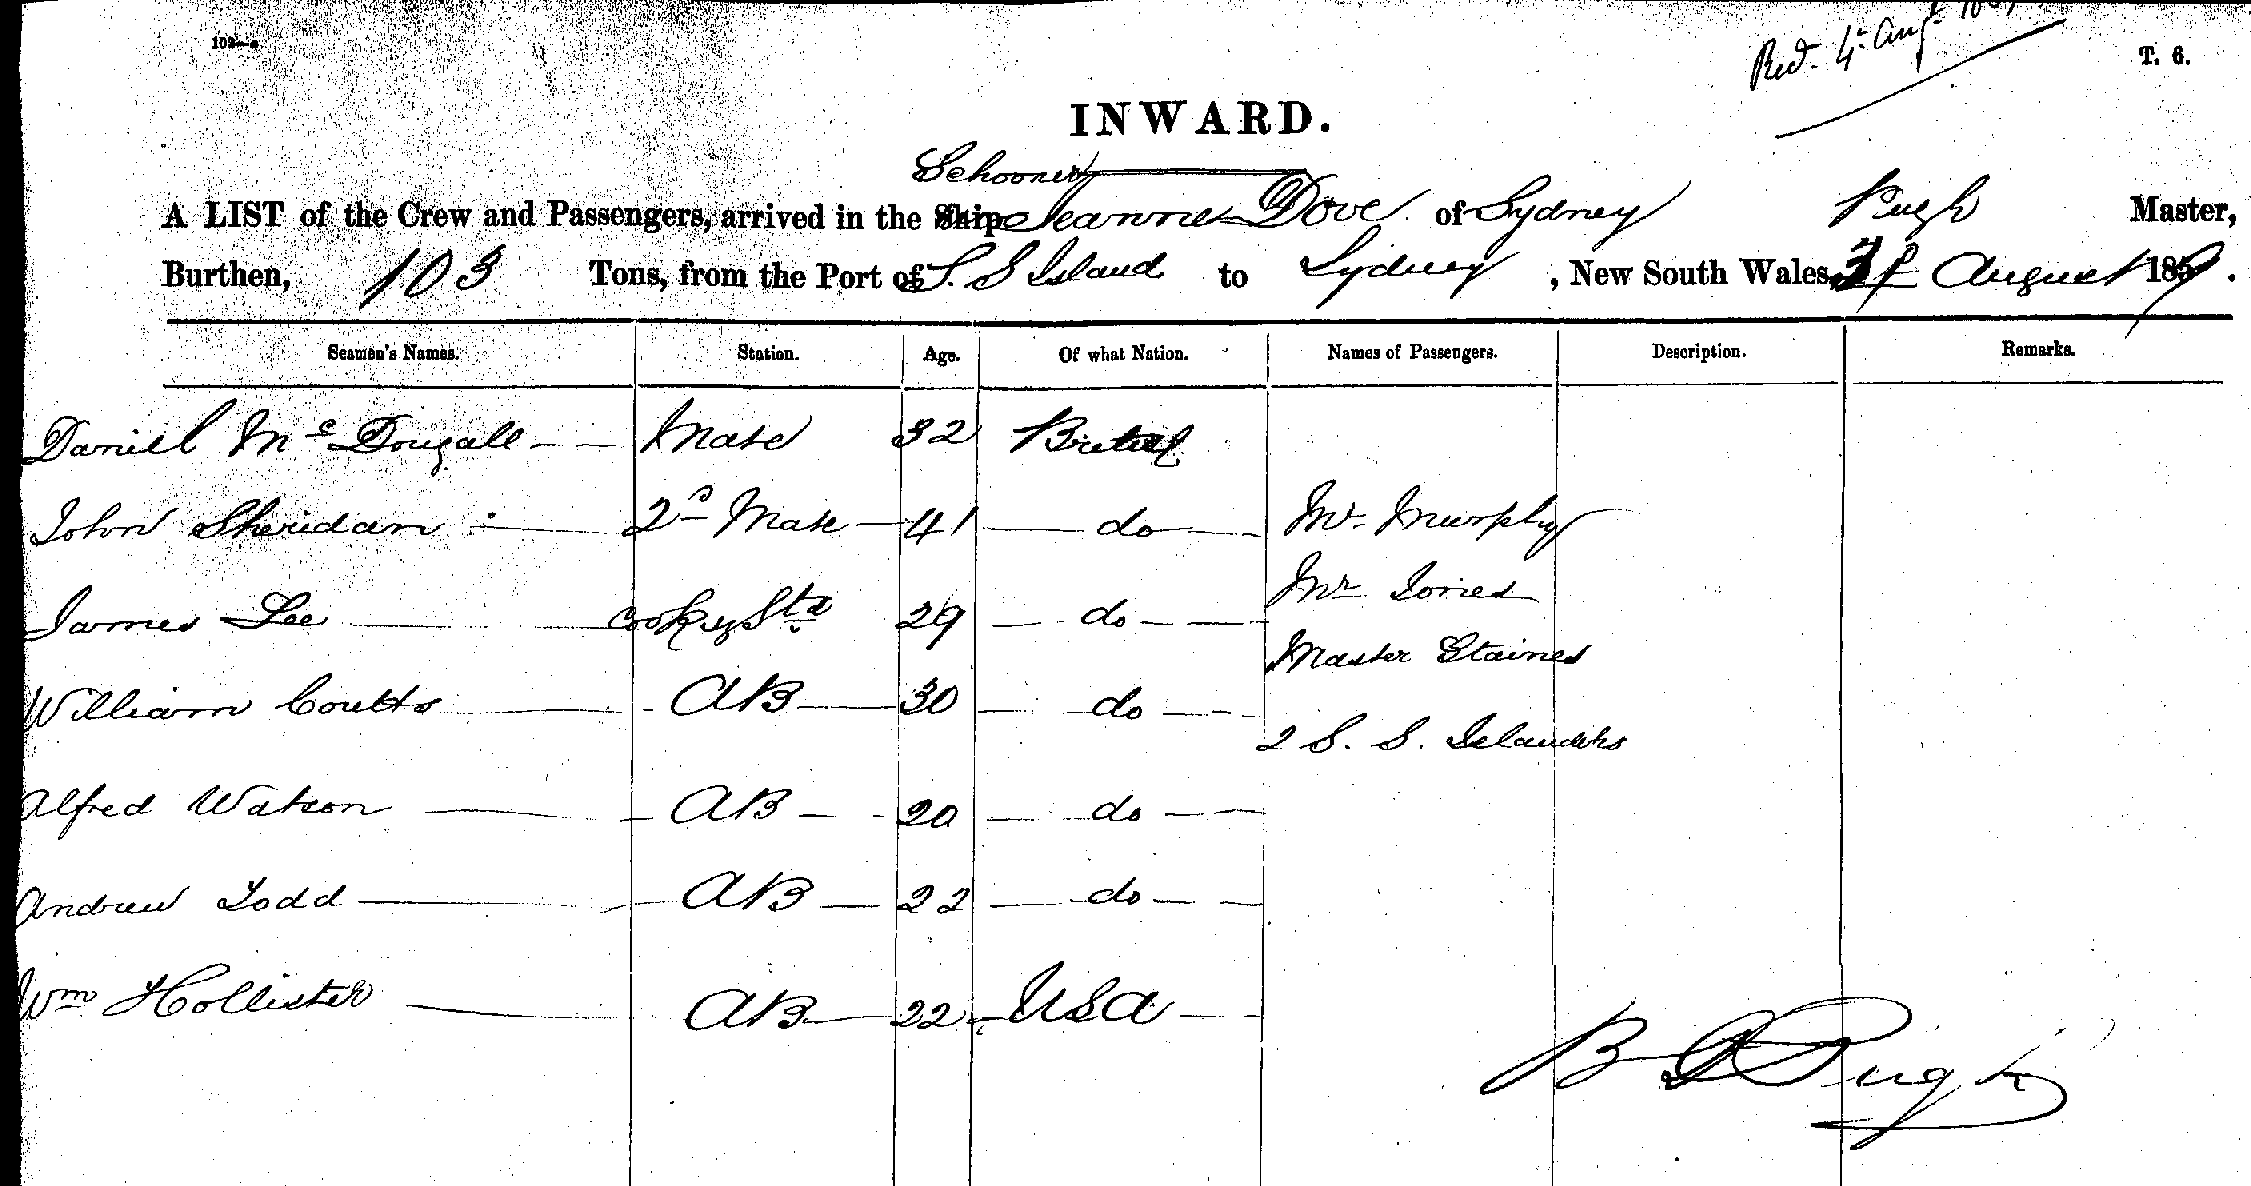 Recd. 4th Augt
T. 6.
INWARD.
Schooner
A LIST of the Crew and Passengers, arrived in the Ship Jeanne Dove of Sydney Pugh Master,
Burthen, 103 Tons, from the Port of S. S Island to Sydney, New South Wales, August 18
Seamen's Names. Station. Age. Of what Nation. Names of Passengers. Description. Remarks.
Daniel Mc Dougall Mate 32 British
John Sheridan 2d Mate 41 do Mr. Murphy
Mr Jones
James Lee Cook & Std 29 do
Master Staines
William Coutts AB 30 do
2 S. S. Islanders
Alfred Watson AB 20 do
Andrew Todd AB 22 do
Wm Hollister AB 22 USA
B Pugh